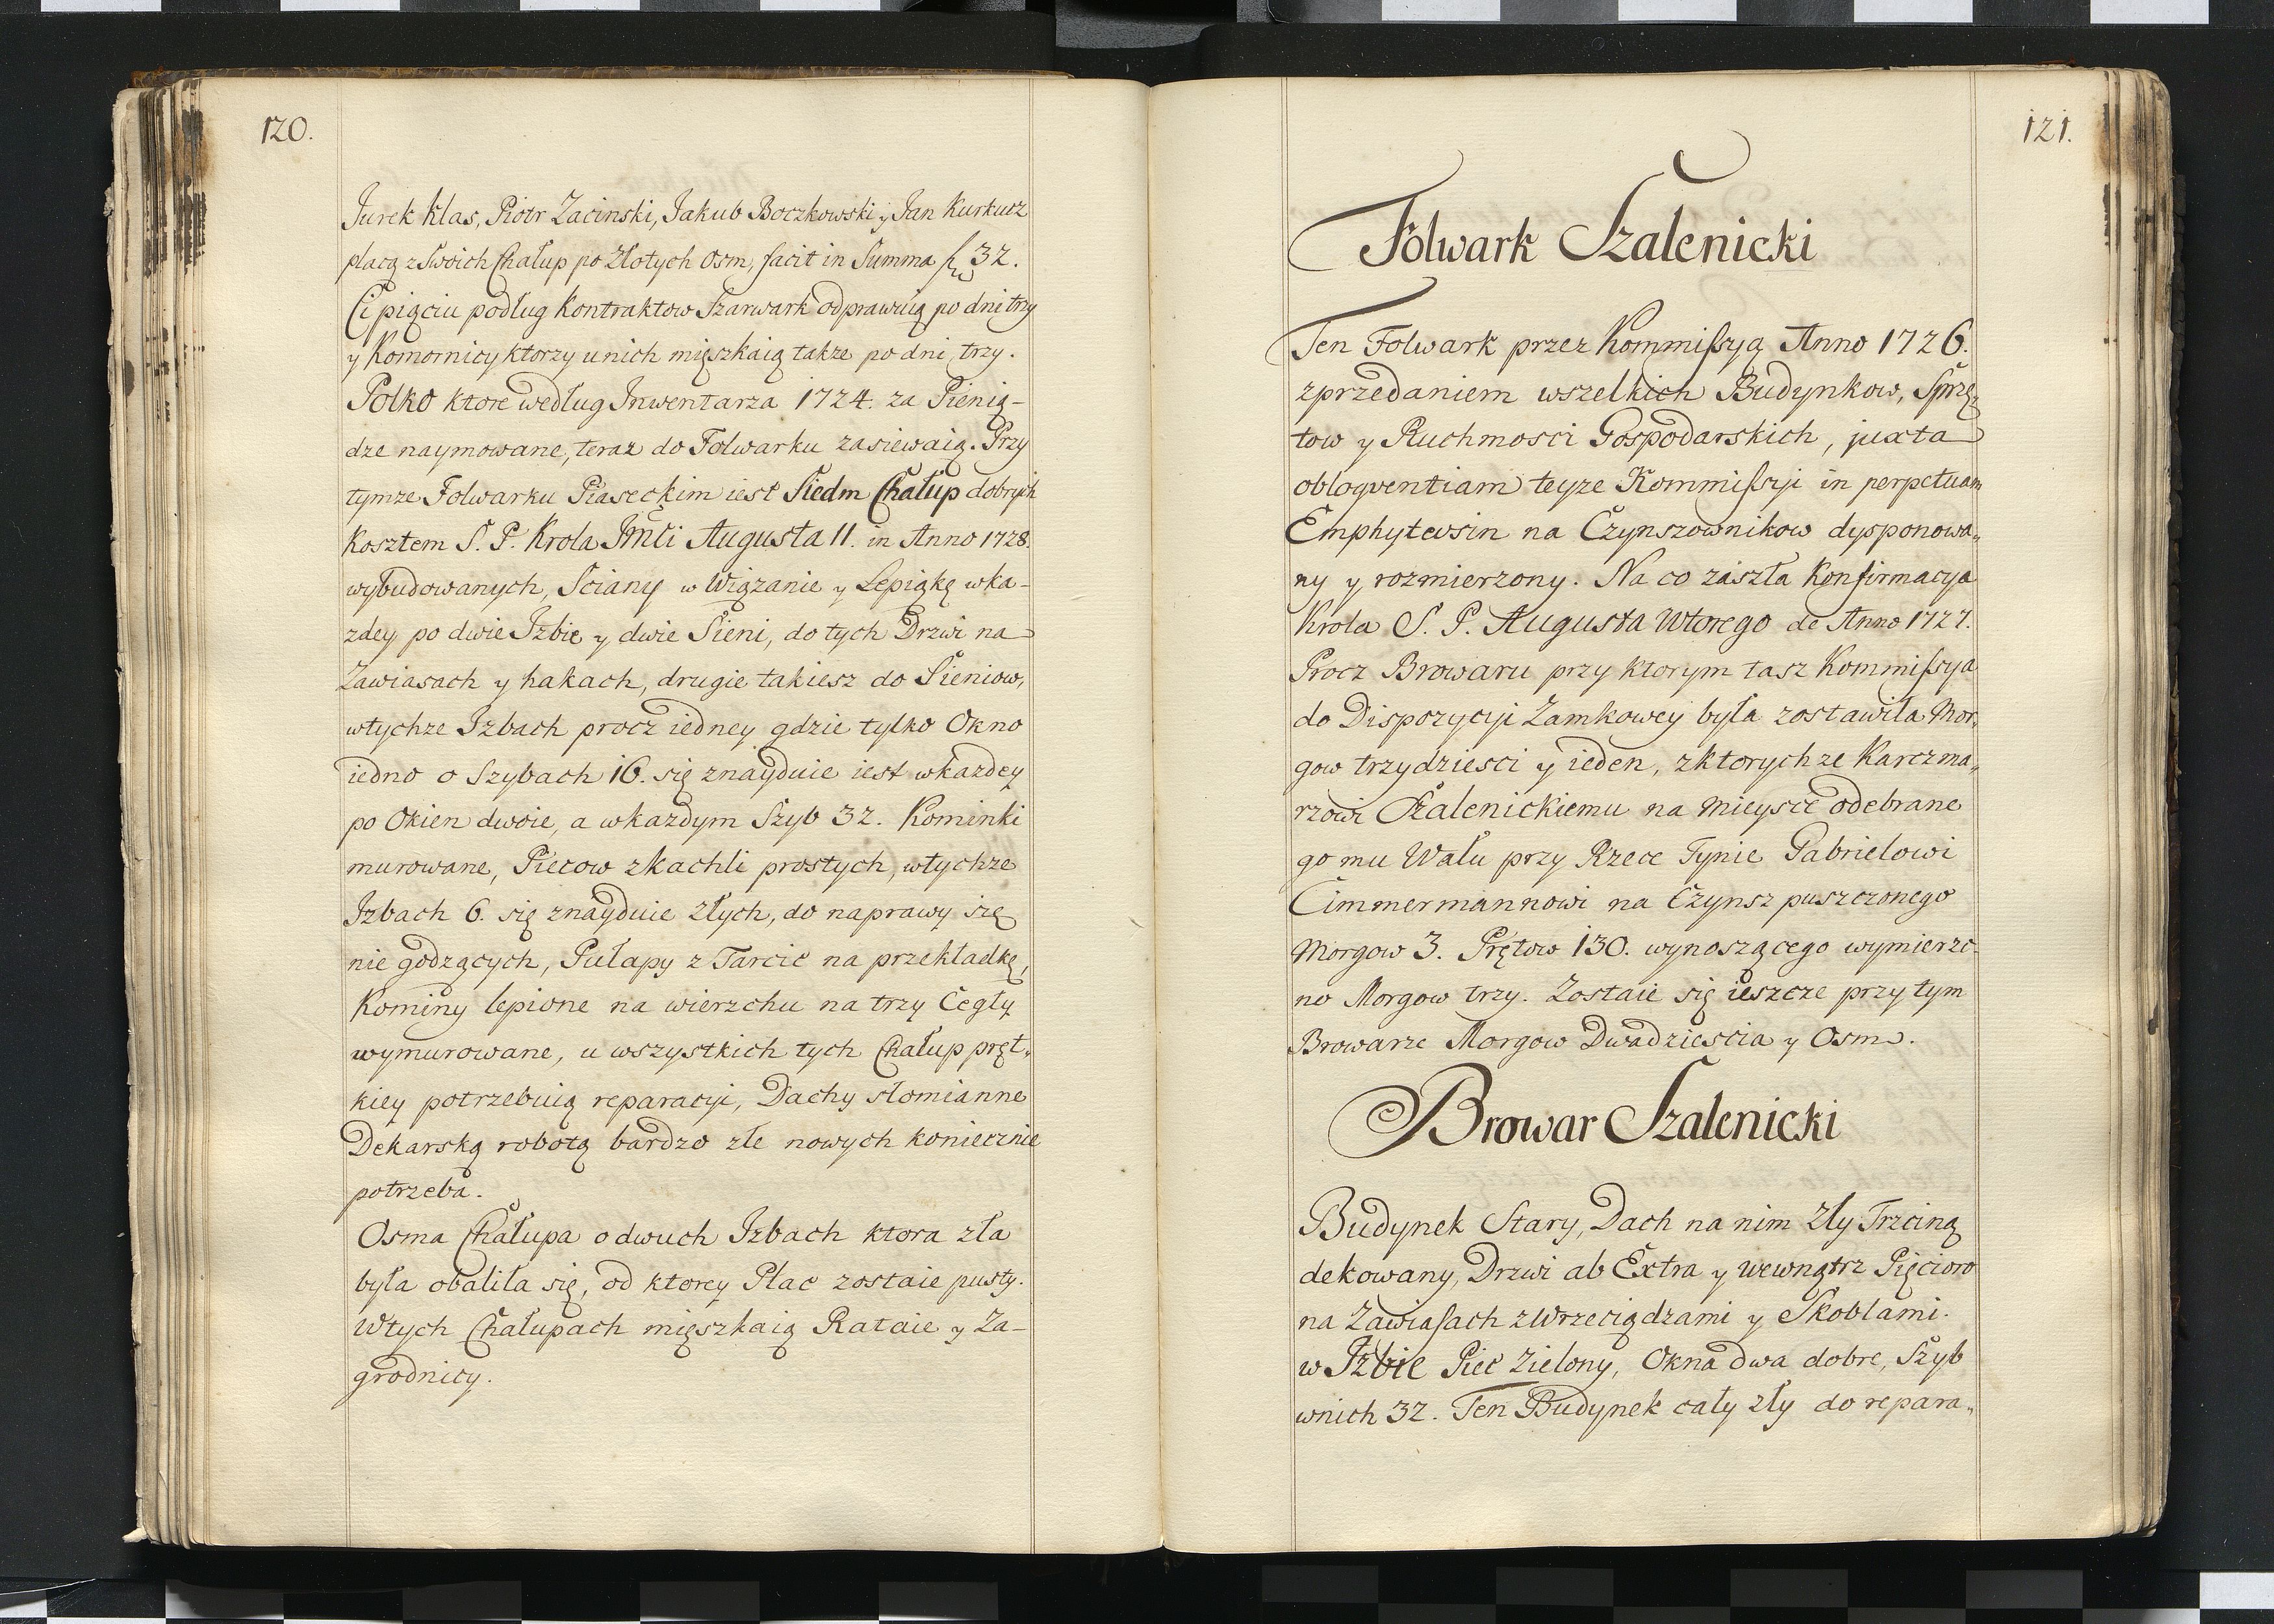 120.
Jurek Klas, Piotr Zacinski, Jakub Boczkowski y Jan Kurkutz
płacą z Swoich Chałup po Złotych Osm, facit in Summa 32.
Ci pięciu podług Kontraktow Szarwark odprawuią po dni trzy
y Komornicy ktorzy u nich mięszkaią takze po dni, trzy.
Polko ktore według Inwentarza 1724. za Pienią-
dze naymowane, teraz do Folwarku zasiewaią. Przy
tymze Folwarku Piaseckim iest Siedm Chałup dobrych
Kosztem S. P. Krola JMci Augusta II. in Anno 1728.
wybudowanych, Sciany w Wiązanie y Lepiąkę w ka-
zdey po dwie Izbie y dwie Sieni, do tych Drzwi na
Zawiasach y hakach, drugie takiesz do Sieniow,
w tychze Izbach procz iedney gdzie tylko Okno
iedno o Szybach 16. się znayduie iest w kazdey
po Okien dwoie, a w kazdym Szyb 32. Kominki
murowane, Piecow z kachli prostych, w tychze
Izbach 6. się znayduie złych, do naprawy się
nie godzących, Pułapy z Tarcic na przekładkę,
Kominy lepione na wierzchu na trzy Cegły
wymurowane, u wszystkich tych Chałup pręt„
kiey potrzebuią reparacyi, Dachy słomianne
Dekarską robotą bardzo złe nowych koniecznie
potrzeba.
Osma Chałupa o dwuch Izbach ktora zła
była obaliła się, od ktorey Plac zostaie pusty.
W tych Chałupach mięszkaią Rataie y Za-
grodnicy.
121.
Folwark Szalenicki
Ten Folwark przez Kommissyą Anno 1726.
z przedaniem wszelkich Budynkow, Sprzę„
tow y Ruchmosci Gospodarskich, juxta
obloqventiam teyze Kommissyi in perpetuam
Emphytevsin na Czynszownikow dysponowa„
ny y rozmierzony. Na co zaszła Konfirmacya
Krola S. P. Augusta Wtorego de Anno 1727.
Procz Browaru przy ktorym tasz Kommissya
do Dispozycyi Zamkowey była zostawiła Mor„
gow trzydziesci y ieden, z ktorych ze Karczma„
rzowi Szalenickiemu na mieysce odebrane
go mu Wału przy Rzece Tynie Gabrielowi
Cimmermannowi na Czynsz puszczonego
Morgow 3. Prętow 130. wynoszącego wymierzo-
no Morgow trzy. Zostaie się ieszcze przy tym
Browarze Morgow Dwadziescia y Osm.
Browar Szalenicki
Budynek Stary, Dach na nim Zły Trzciną
dekowany, Drzwi ab Extra y wewnątrz Pięcioro
na Zawiasach z Wrzeciądzami y Skoblami.
w Izbie Piec Zielony, Okna dwa dobre, Szyb
w nich 32. Ten Budynek cały zły do repara„